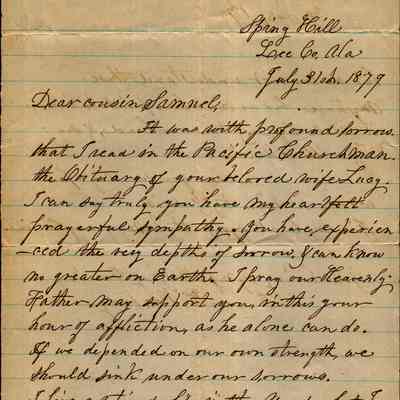 Sping Hill
Lee Co, Ala
July 31st. 1879
Dear cousin Samuel,
It was with profound sorrow
that I read in the Pacific Churchman.
the Obituary of your beloved wife Lucy.
I can say truly you have my heartfelt
prayerful sympathy. You have, experien
-ced the very depths of sorrow, & can know
no greater on Earth. I pray our Heavenly
Father may support you, in this your
hour of affliction, as he alone can do.
If we depended on our own strength, we
should sink under our sorrows.